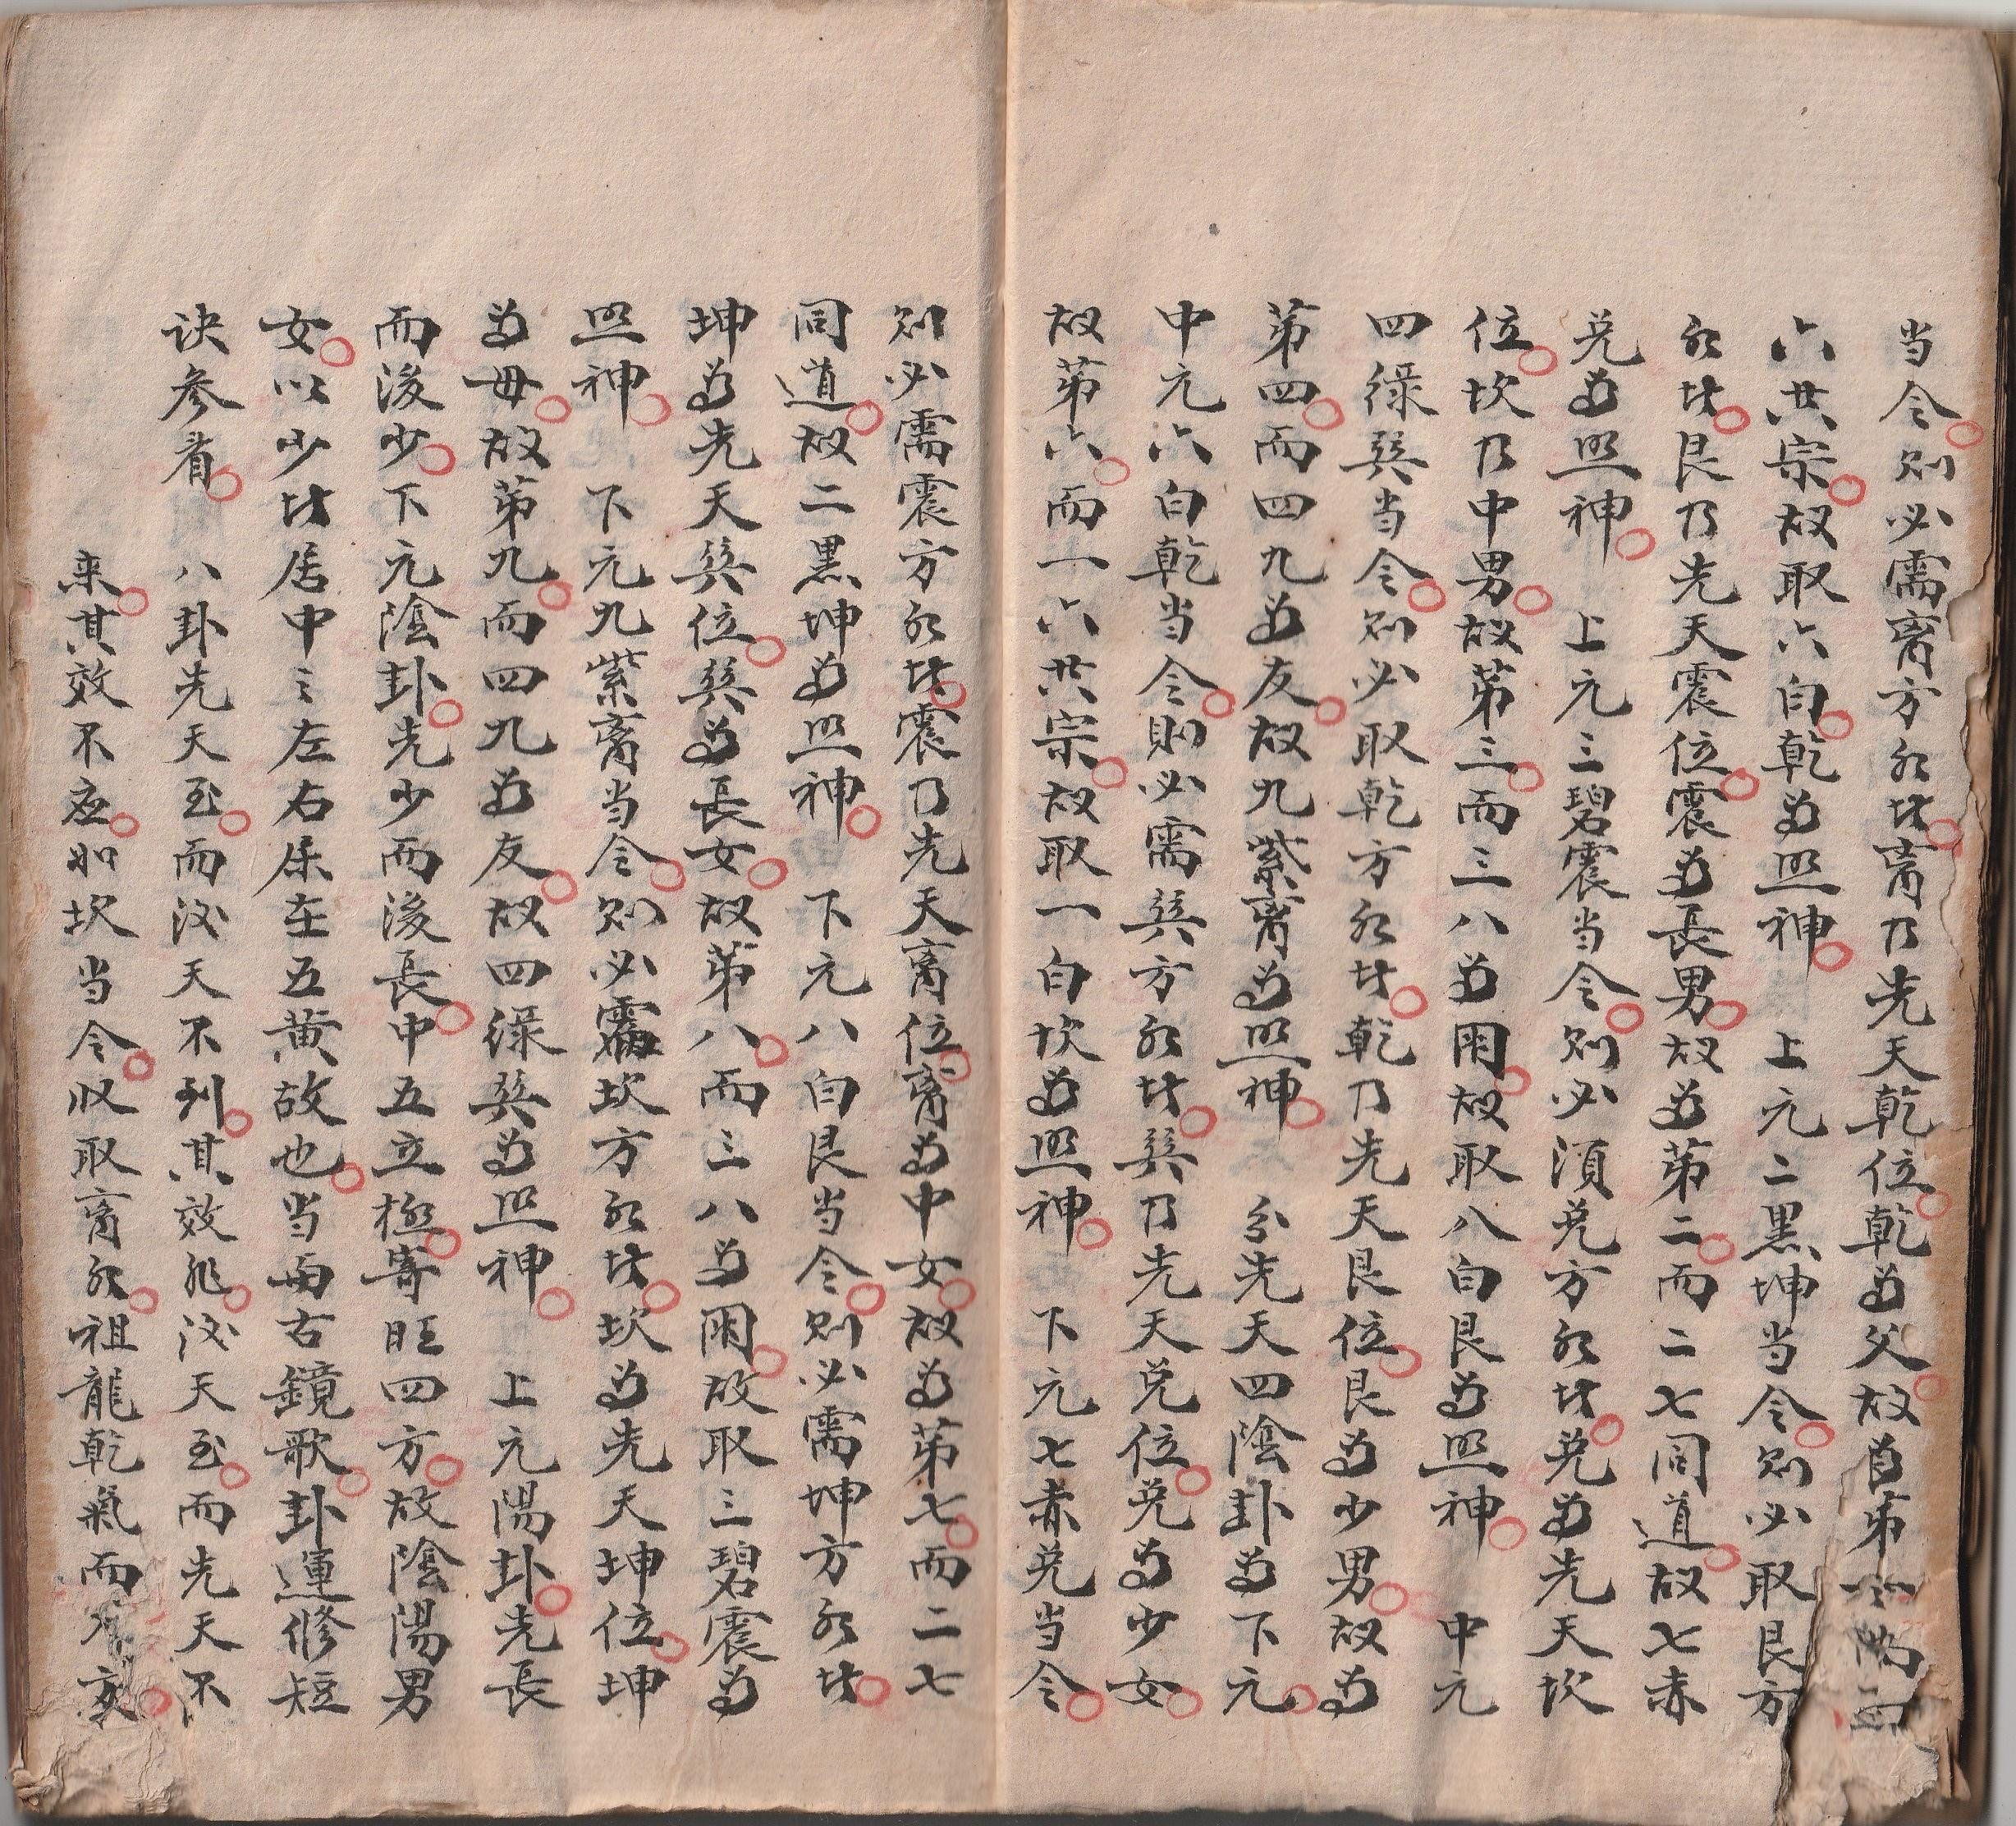 当令則必需离方水法离乃先天乾位乾为父故首第一
六共宗故取六白乾为照神　上元二黑坤当令則必取艮方
水法艮乃先天震位震为長男故为第二而二七同道故七赤
兑为照神　上元三碧震当令則必須兑方水法兑为先天坎
位坎乃中男故第三而三八为朋故取八白艮为照神　中元
四绿巽当令則必取乾方水法乾乃先天艮位艮为少男故为
第四而四九为友故九紫离为照神　分先天四陰卦为下元
中元六白乾当令則必需巽方水法巽乃先天兑位兑为少女
故第六而一六共宗故取一白坎为照神　下元七赤兑当令
則必需震方水法震乃先天离位离为中女故为第七而二七
同道故二黑坤为照神　下元八白艮当令則必需坤方水法
坤为先天巽位巽为長女故第八而三八为朋故取三碧震为
照神　下元九紫离当令則必需坎方水法坎为先天坤位坤
为毋故第九而四九为友故四绿巽为照神　上元陽卦先長
而後少下元陰卦先少而後長中五立極寄旺四方故陰陽男
女以少法居中之左右係在五黄故也当与右鏡歌卦運修短
诀参看　八卦先天至而後天不到其效遅後天至而先天不
来其效不应如坎当令収取离水祖龍乾氣而入亥